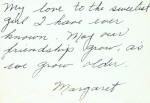 My love to the sweetest
girl I have ever
known. May our
friendship grow, as
we grow older.
Margaret